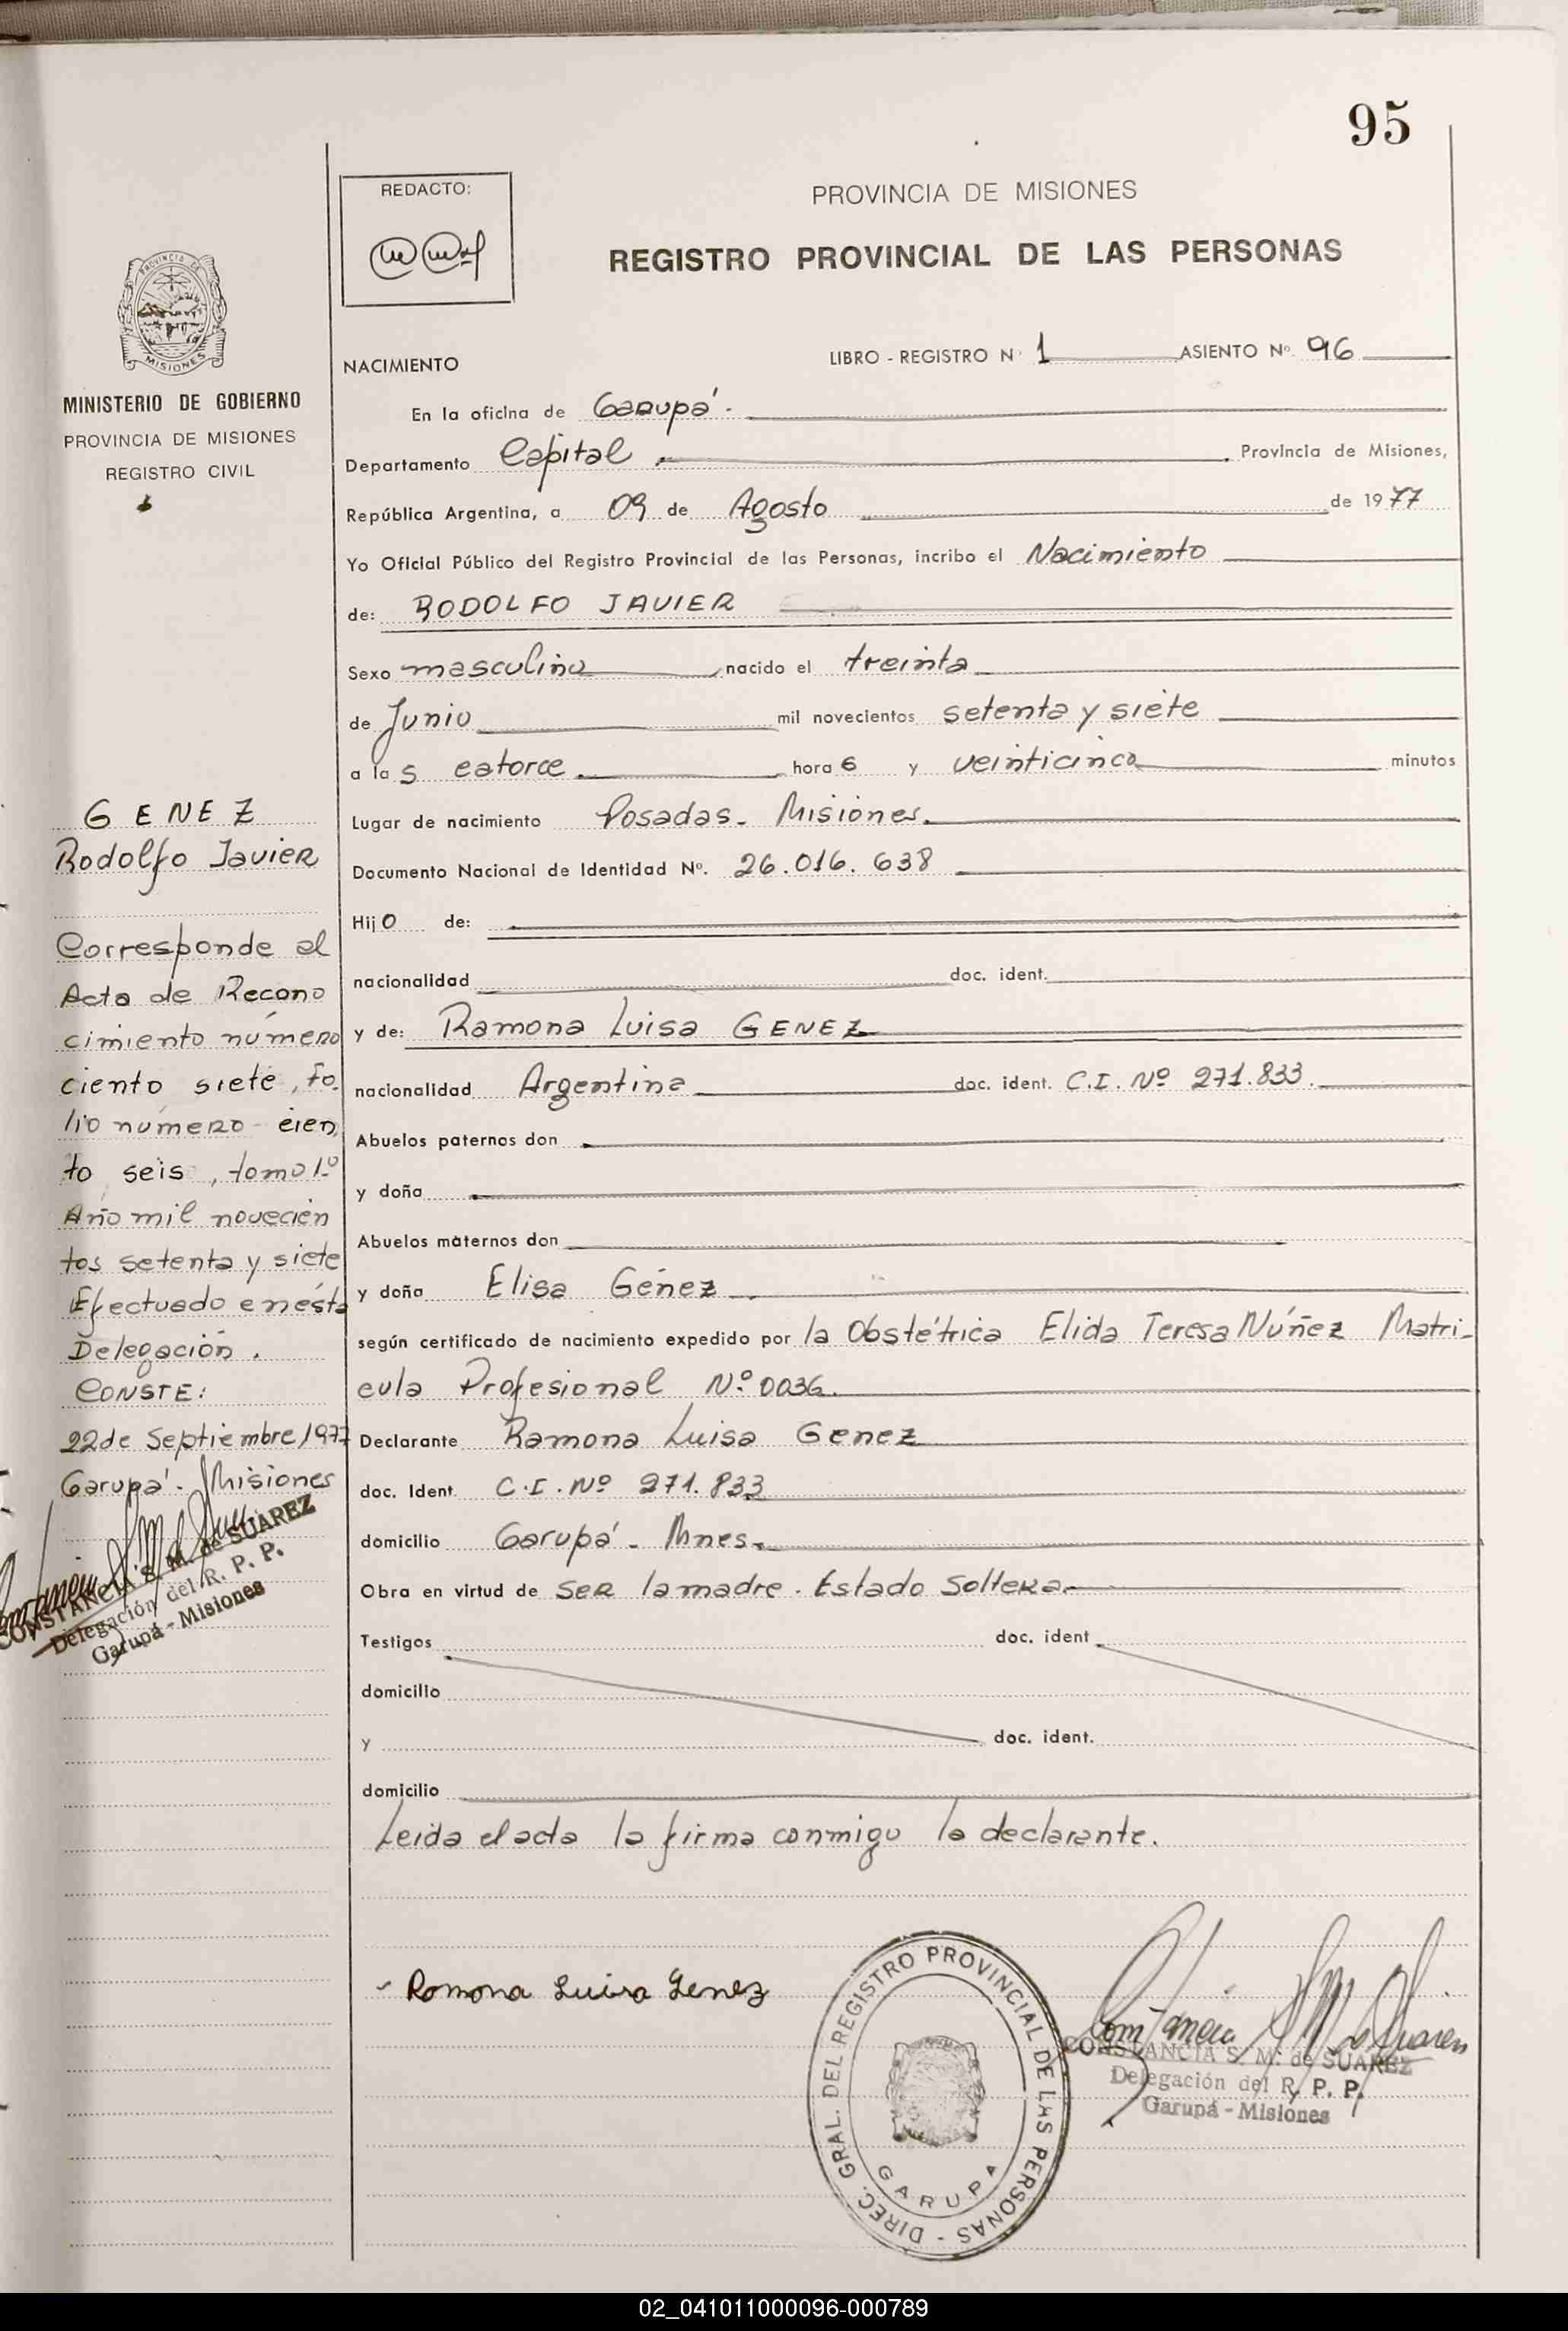 95
REDACTO:
PROVINCIA DE MISIONES
REGISTRO PROVINCIAL DE LAS PERSONAS
PROVINCIA DE
MISIONES
MINISTERIO DE GOBIERNO
PROVINCIA DE MISIONES
REGISTRO CIVIL
GENEZ
Rodolfo Javier
Corresponde al
Acta de Recono
cimiento número
ciento siete, fo-
lio número cien
to seis, tomo 1º
Año mil novecien
tos setenta y siete
Efectuado en ésta
Delegación.
CONSTE:
22 de Septiembre 1977
Garupá. Misiones
CONSTANCIA S. M. de SUAREZ
Delegación del R. P. P.
Garupá - Misiones
NACIMIENTO LIBRO - REGISTRO Nº 1 ASIENTO Nº. 96
En la oficina de Garupá.
Departamento Capital. Provincia de Misiones,
República Argentina, a 09 de Agosto de 1977
Yo Oficial Público del Registro Provincial de las Personas, incribo el Nacimiento
de: RODOLFO JAVIER
Sexo masculino nacido el treinta
de Junio mil novecientos setenta y siete
a las catorce. horas y veinticinco minutos
Lugar de nacimiento Posadas. Misiones.
Documento Nacional de Identidad Nº. 26.016.638
Hijo de:
nacionalidad doc. ident.
y de: Ramona Luisa GENEZ
nacionalidad Argentina doc. ident. C.I. Nº 271.833.
Abuelos paternos don
y doña
Abuelos maternos don
y doña Elisa Génez
según certificado de nacimiento expedido por la Obstétrica Elida Teresa Núñez Matri-
cula Profesional Nº 0036.
Declarante Ramona Luisa Genez
doc. Ident. C.I. Nº 271.833
domicilio Garupá - Mnes.
Obra en virtud de ser la madre. Estado Soltera.
Testigos doc. ident
domicilio
y doc. ident.
domicilio
Leida el acta la firma conmigo la declarante.
Ramona Luisa Genez
DIREC. GRAL. DEL REGISTRO PROVINCIAL DE LAS PERSONAS -
GARUPA
Constancia S M de Suarez
CONSTANCIA S. M. de SUAREZ
Delegación del R. P. P.
Garupá - Misiones
02_041011000096-000789